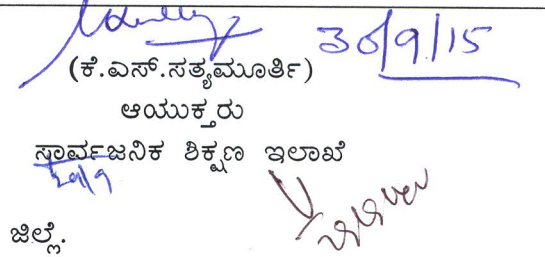 30/9/15
(ಕೆ.ಎಸ್.ಸತ್ಯಮೂರ್ತಿ)
ಆಯುಕ್ತರು
ಸಾರ್ವಜನಿಕ ಶಿಕ್ಷಣ ಇಲಾಖೆ
ಜಿಲ್ಲೆ.